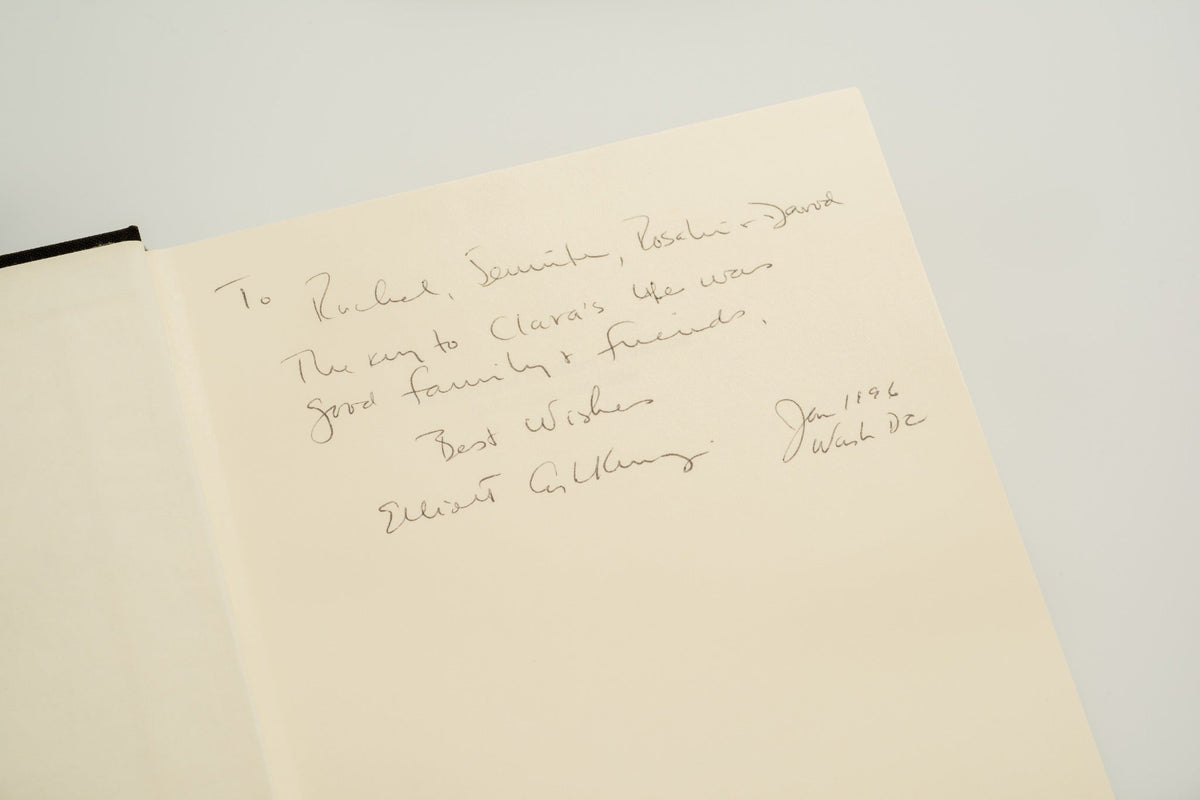 To Rachel, Jennifer, Rosalin + David
The key to Clara's life was
good family + friends.
Best Wishes
Elliott
Jan 1996
Wash DC